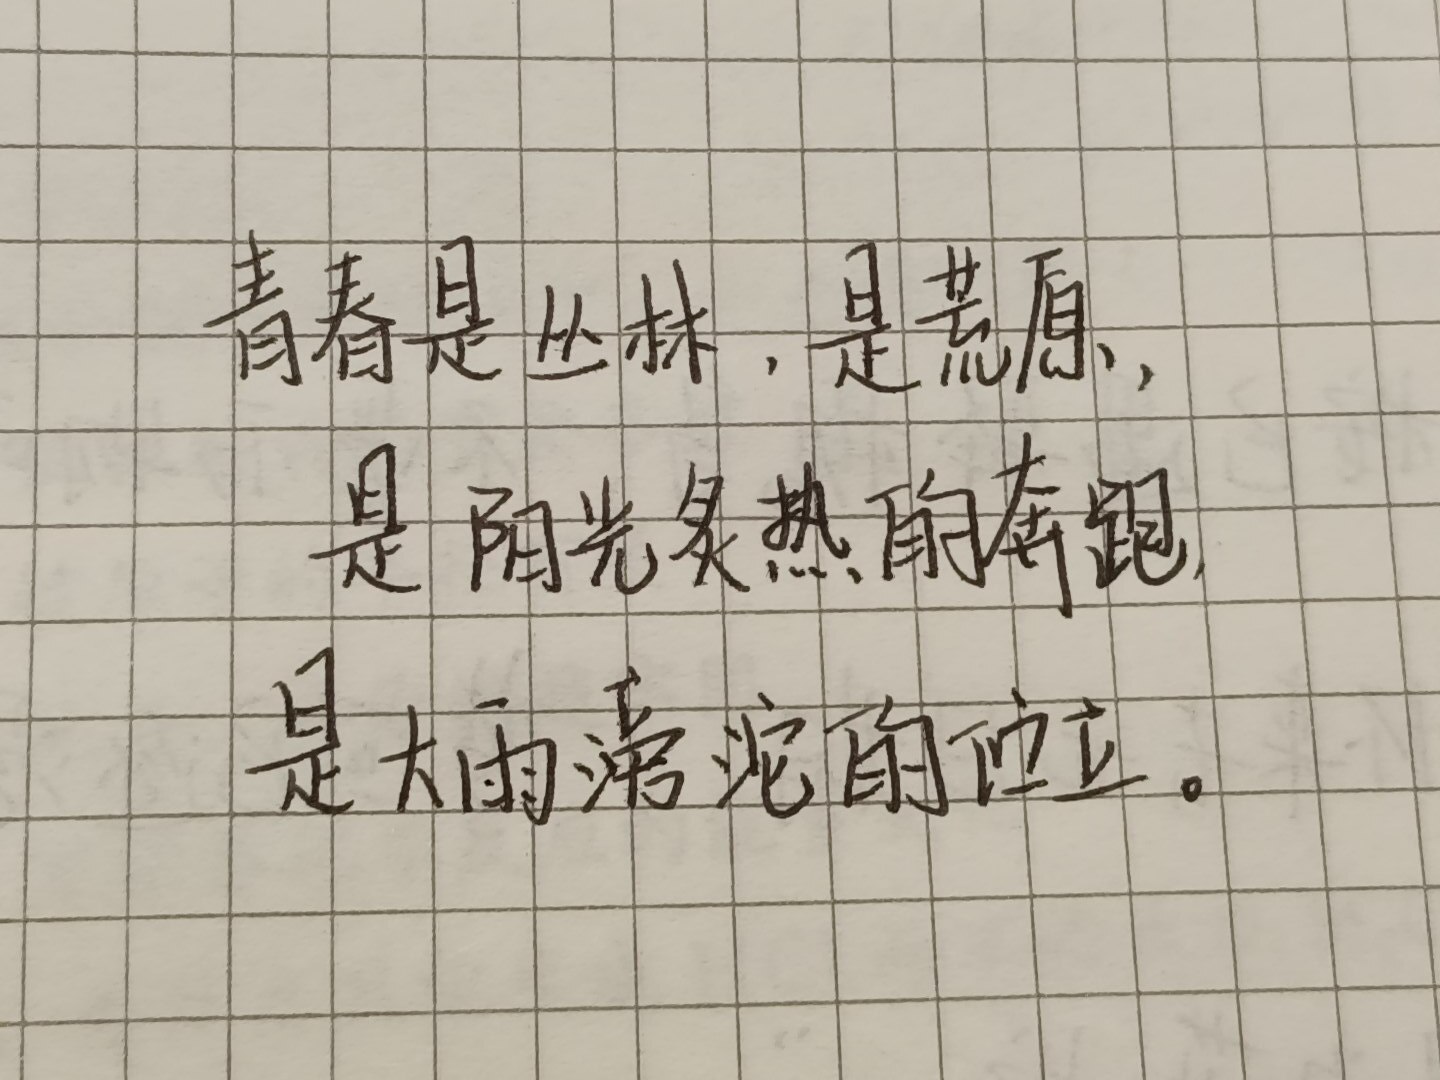 青春是丛林，是荒原，
是阳光炙热的奔跑，
是大雨滂沱的伫立。